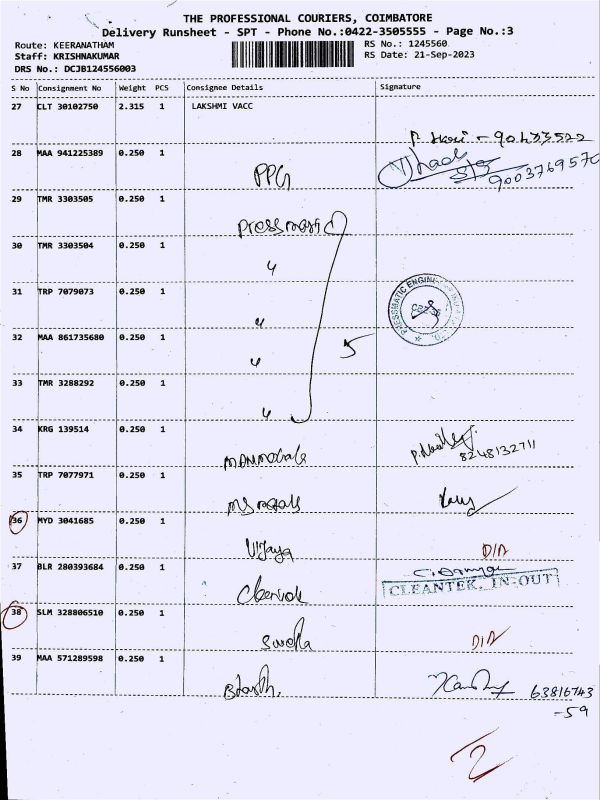 THE PROFESSIONAL COURIERS, COIMBATORE
Delivery Runsheet - SPT - Phone No.:0422-3505555 - Page No.:3
Route: KEERANATHAM RS No.: 1245560
Staff: KRISHNAKUMAR RS Date: 21-Sep-2023
DRS No.: DCJB124556003
S No Consignment No Weight PCS Consignee Details Signature
27 CLT 30102750 2.315 1 LAKSHMI VACC
28 MAA 941225389 0.250 1 PPG
9003769570
29 TMR 3303505 0.250 1 Pressmatic
30 TMR 3303504 0.250 1 "
31 TRP 7079073 0.250 1 "
32 MAA 861735680 0.250 1 "
5
33 TMR 3288292 0.250 1 "
34 KRG 139514 0.250 1
8248132711
35 TRP 7077971 0.250 1 MS metals
36 MYD 3041685 0.250 1 Vijaya
37 BLR 280393684 0.250 1
CLEANTEK, IN-OUT
38 SLM 328806510 0.250 1
39 MAA 571289598 0.250 1
63816743
-59
2